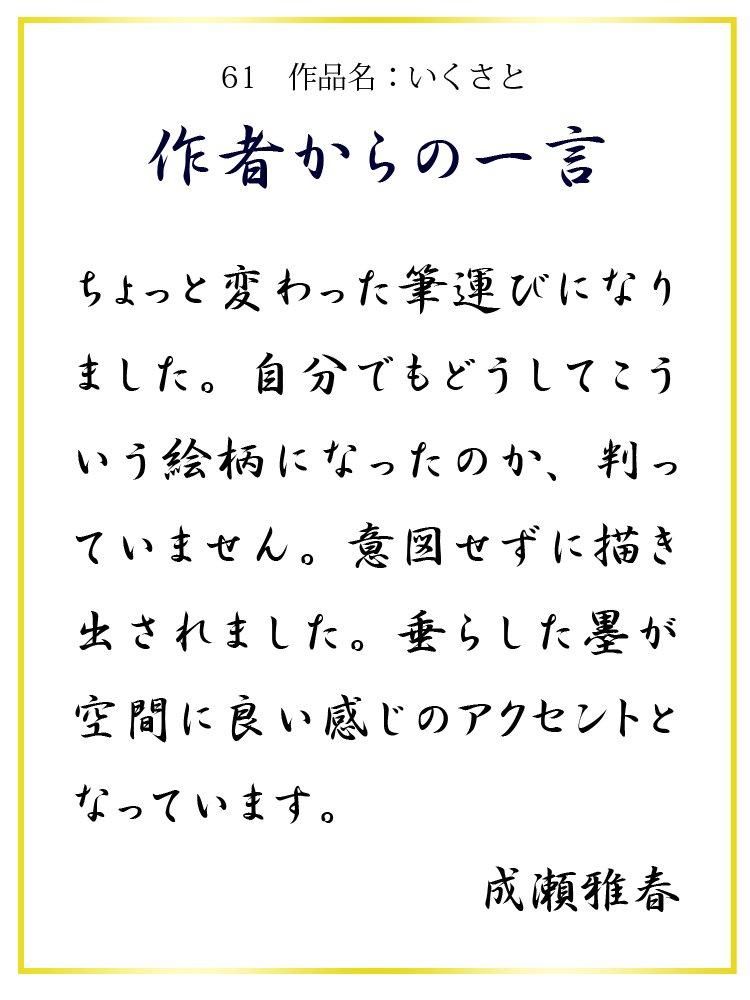 61　作品名：いくさと
作者からの一言
ちょっと変わった筆運びになり
ました。自分でもどうしてこう
いう絵柄になったのか、判っ
ていません。意図せずに描き
出されました。垂らした墨が
空間に良い感じのアクセントと
なっています。
成瀬雅春